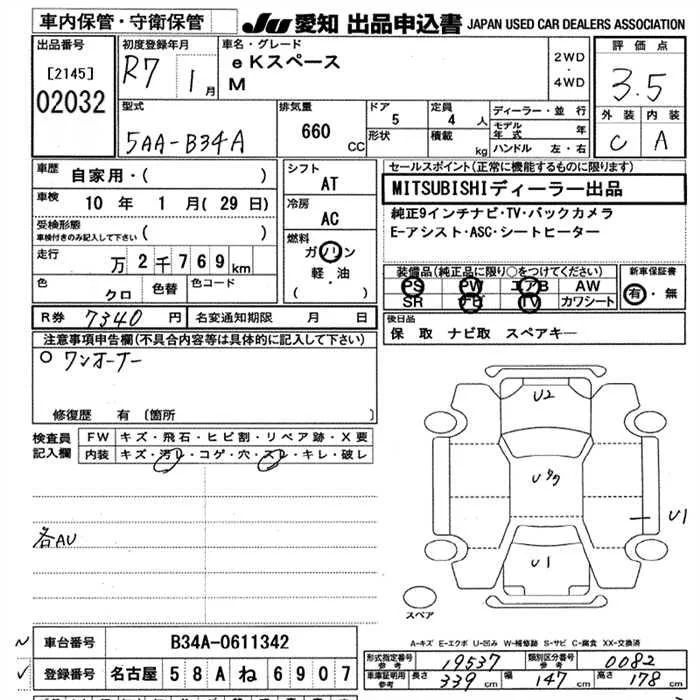 車内保管・守衛保管
JU 愛知 出品申込書 JAPAN USED CAR DEALERS ASSOCIATION
出品番号
[2145]
02032
初度登録年月
R7 1月
車名・グレード
eKスペース
M
2WD
・
4WD
評価点
3.5
外装 内装
C A
型式
5AA-B34A
排気量
660 CC
ドア
5
定員
4 人
形状
積載
kg
ディーラー・並行
モデル年式 年
ハンドル 左・右
車歴
自家用・( )
車検
10 年 1 月(29 日)
受検形態
車検付きのみ記入して下さい ( )
走行
万 2 千 7 6 9 km
色
クロ
色替
色コード
シフト
AT
冷房
AC
燃料
ガソリン
軽・油
( )
セールスポイント(正常に機能するものに限ります)
MITSUBISHIディーラー出品
純正9インチナビ・TV・バックカメラ
E-アシスト・ASC・シートヒーター
装備品(純正品に限り○をつけてください)
PS PW エアB AW
SR TV カワシート
新車保証書
有・無
R券 7340 円
名変通知期限 月 日
後日品
保 取 ナビ取 スペアキー
注意事項申告欄(不具合内容等は具体的に記入して下さい)
○ ワンオーナー
修復歴 有 〔箇所 〕
検査員
記入欄
FW キズ・飛石・ヒビ割・リペア跡・X要
内装 キズ・汚レ・コゲ・穴・スレ・キレ・破レ
各AU
U2
U1
U1
スペア
A-キズ E-エクボ U-凹み W-補修跡 S-サビ C-腐食 XX-交換済
車台番号 B34A-0611342
登録番号 名古屋 5 8 A ね 6 9 0 7
形式指定番号 参考 19537
類別区分番号 参考 0082
車庫証明用 参考 長さ 339 cm 幅 147 cm 高さ 178 cm